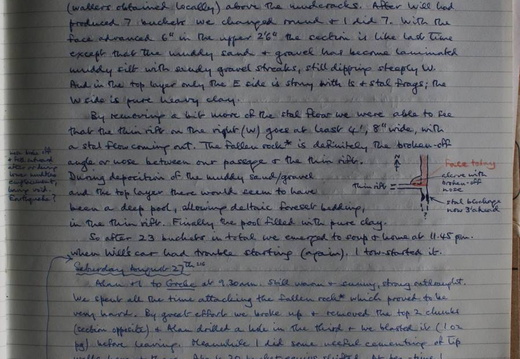 (wallers obtained locally) above the mudcracks. After Will had
produced 7 buckets we changed round & I did 7. With the
face advanced 6" in the upper 2'6" the section is like last time
except that the muddy sand & gravel has become laminated
muddy silt with sandy gravel streaks, still dipping steeply W.
And in the top layer only the E side is stony with ls & stal frags; the
W side is pure heavy clay.
By removing a bit more of the stal flow we were able to see
that the thin rift on the right (W) goes at least 4', 8" wide, with
a stal flow coming out. The fallen rock* is definitely the broken-off
angle or nose between our passage & the thin rift.
During deposition of the muddy sand/gravel
and the top layer there would seem to have
been a deep pool, allowing deltaic foreset bedding,
in the thin rift. Finally the pool filled with pure clay.
So after 23 buckets in total we emerged to soup & home at 11.45 pm.
when Will's car had trouble starting (again). I tow-started it.
Saturday August 27th
Alan & I to at 9.30am. Still warm & sunny, strong outdraught.
We spent all the time attacking the fallen rock* which proved to be
very hard. By great effort we broke up & removed the top 2 chunks
(section opposite) & Alan drilled a hole in the third & we blasted it (1 oz
pg) before leaving. Meanwhile I did some useful cementing of tip
Earthquake?
thin rift
face today
where with
broken-off
nose
stal blockage
now 3' ahead